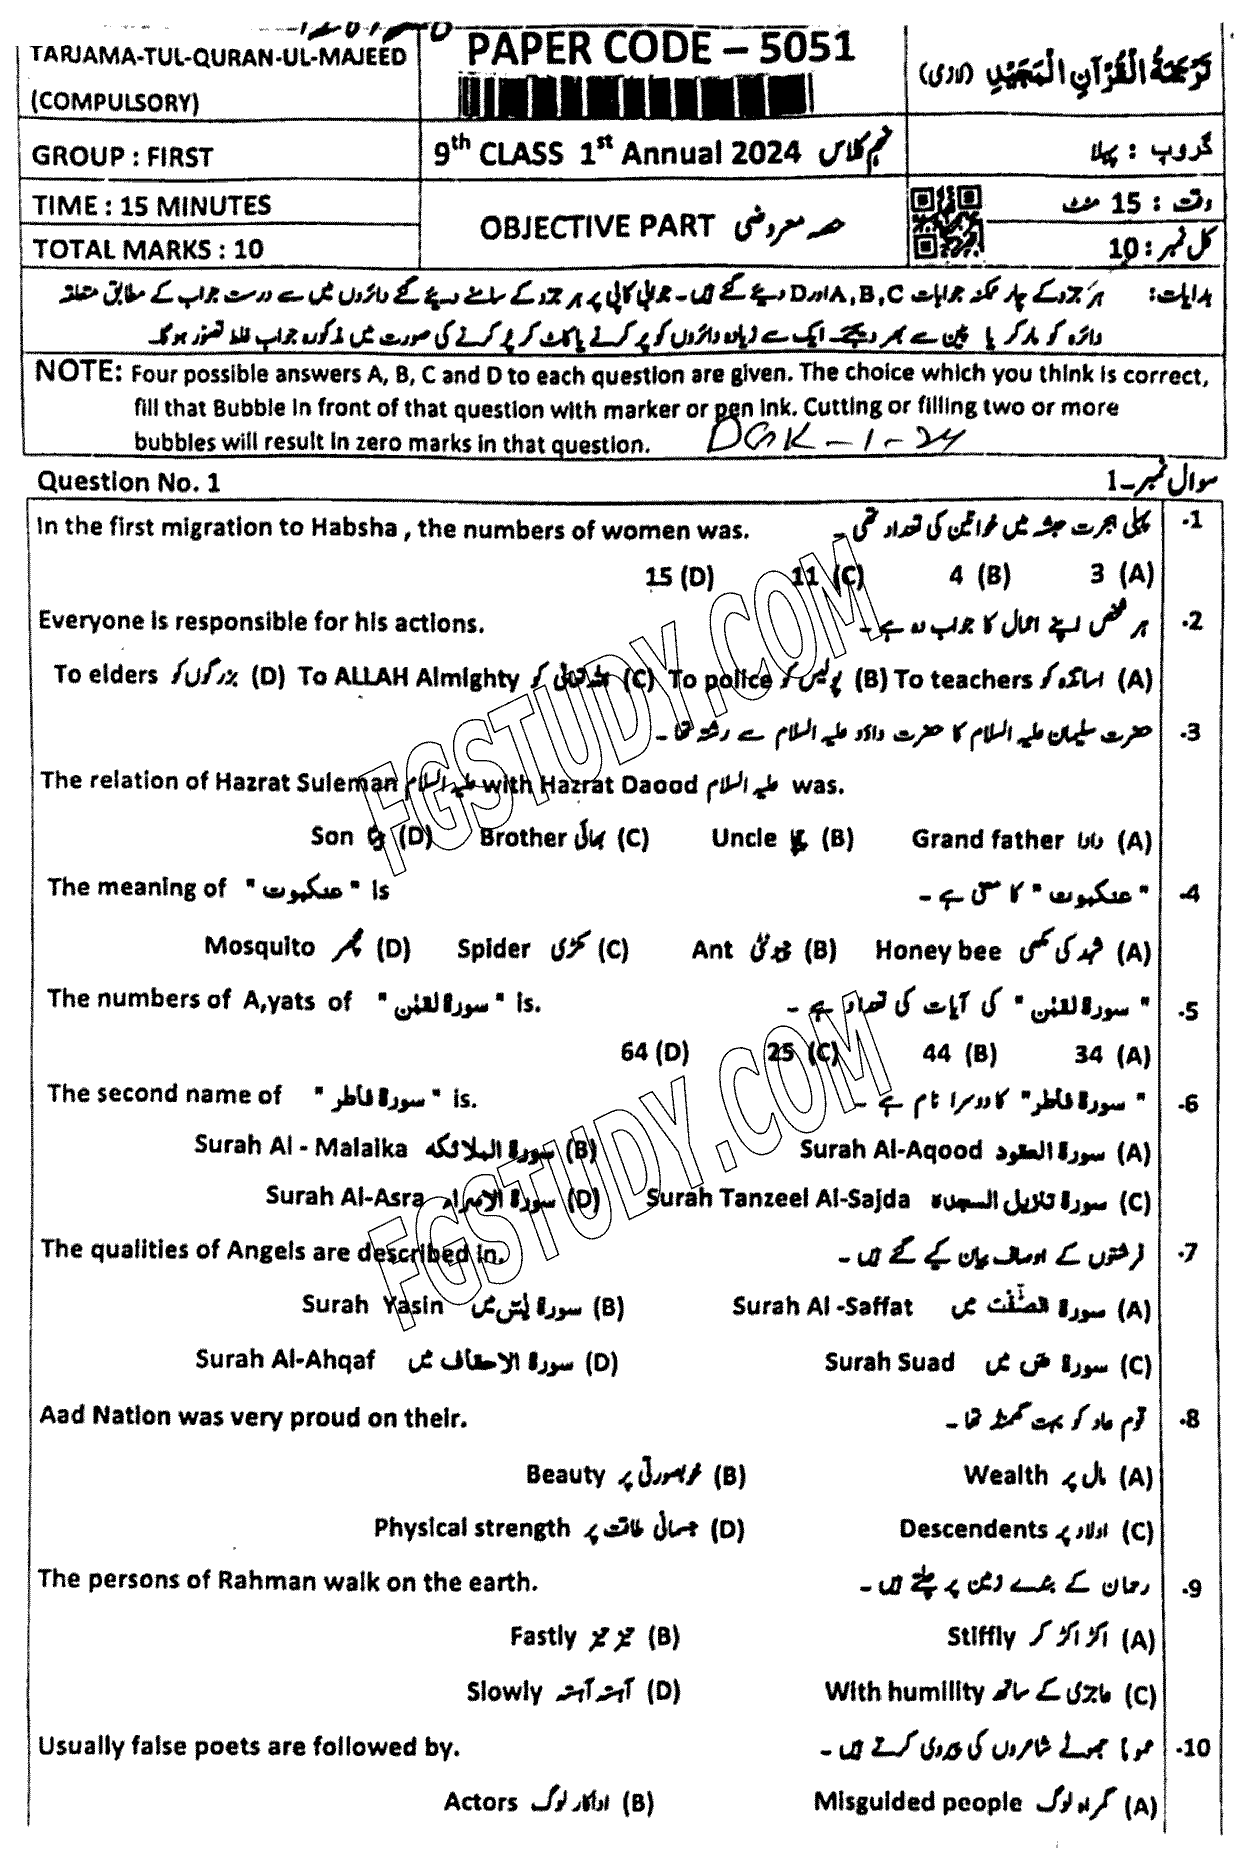 TARJAMA-TUL-QURAN-UL-MAJEED
(COMPULSORY)
PAPER CODE – 5051
تَرْجَمَةُ الْقُرْآنِ الْمَجِيْدِ (لازمی)
GROUP : FIRST
9th CLASS 1st Annual 2024 نہم کلاس
گروپ : پہلا
TIME : 15 MINUTES
OBJECTIVE PART حصہ معروضی
وقت : 15 منٹ
TOTAL MARKS : 10
کل نمبر : 10
ہدایات: ہر جزو کے چار ممکنہ جوابات A, B, C اور D دیئے گئے ہیں۔ جوابی کاپی پر ہر جزو کے سامنے دیئے گئے دائروں میں سے درست جواب کے مطابق متعلقہ
دائرہ کو مارکر یا پین سے بھر دیجئے۔ ایک سے زیادہ دائروں کو پر کرنے یا کاٹ کر پر کرنے کی صورت میں مذکورہ جواب غلط تصور ہوگا۔
NOTE: Four possible answers A, B, C and D to each question are given. The choice which you think is correct,
fill that Bubble in front of that question with marker or pen ink. Cutting or filling two or more
bubbles will result in zero marks in that question. DGK-1-24
Question No. 1 سوال نمبر۔1
In the first migration to Habsha , the numbers of women was. پہلی ہجرت حبشہ میں خواتین کی تعداد تھی۔ .1
15 (D) 11 (C) 4 (B) 3 (A)
Everyone is responsible for his actions. ہر شخص اپنے اعمال کا جواب دہ ہے۔ .2
To elders بزرگوں کو (D) To ALLAH Almighty اللہ تعالیٰ کو (C) To police پولیس کو (B) To teachers اساتذہ کو (A)
حضرت سلیمان علیہ السلام کا حضرت داؤد علیہ السلام سے رشتہ تھا۔ .3
The relation of Hazrat Suleman علیہ السلام with Hazrat Daood علیہ السلام was.
Son بیٹا (D) Brother بھائی (C) Uncle چچا (B) Grand father دادا (A)
The meaning of "عنکبوت" is "عنکبوت" کا معنی ہے۔ -4
Mosquito مچھر (D) Spider مکڑی (C) Ant چیونٹی (B) Honey bee شہد کی مکھی (A)
The numbers of A,yats of "سورة لقمٰن" is. "سورة لقمٰن" کی آیات کی تعداد ہے۔ -5
64 (D) 25 (C) 44 (B) 34 (A)
The second name of "سورة فاطر" is. "سورة فاطر" کا دوسرا نام ہے۔ -6
Surah Al - Malaika سورة الملائکہ (B) Surah Al-Aqood سورة العقود (A)
Surah Al-Asra سورة الاسراء (D) Surah Tanzeel Al-Sajda سورة تنزیل السجدہ (C)
The qualities of Angels are described in. فرشتوں کے اوصاف بیان کیے گئے ہیں۔ -7
Surah Yasin سورة یٰسٓ میں (B) Surah Al -Saffat سورة الصّٰفّٰت میں (A)
Surah Al-Ahqaf سورة الاحقاف میں (D) Surah Suad سورة صٓ میں (C)
Aad Nation was very proud on their. قوم عاد کو بہت گھمنڈ تھا۔ -8
Beauty خوبصورتی پر (B) Wealth مال پر (A)
Physical strength جسمانی طاقت پر (D) Descendents اولاد پر (C)
The persons of Rahman walk on the earth. رحمان کے بندے زمین پر چلتے ہیں۔ .9
Fastly تیز تیز (B) Stiffly اکڑ اکڑ کر (A)
Slowly آہستہ آہستہ (D) With humility عاجزی کے ساتھ (C)
Usually false poets are followed by. عموماً جھوٹے شاعروں کی پیروی کرتے ہیں۔ .10
Actors اداکار لوگ (B) Misguided people گمراہ لوگ (A)
FGSTUDY.COM
FGSTUDY.COM